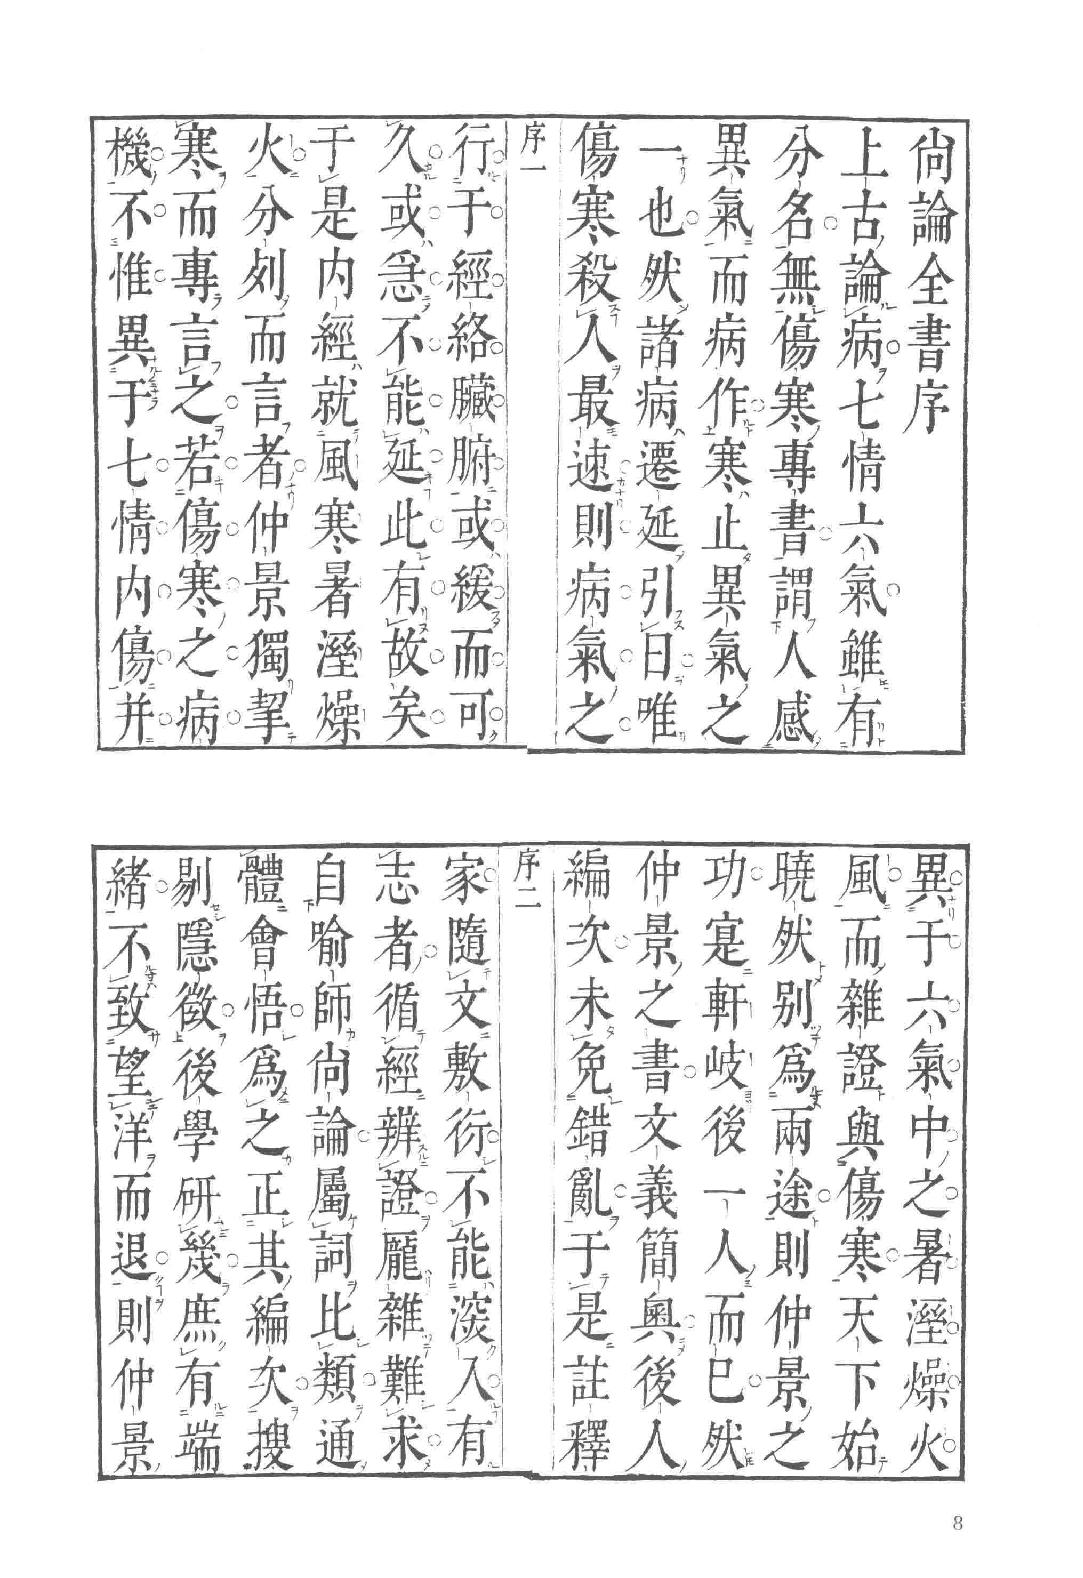 尙論全書序
上古論病七情六氣雖有
分名無傷寒專書謂人感
異氣而病作寒止異氣之
一也然諸病遷延引日唯
傷寒殺人最速則病氣之
序一
行于經絡臟腑或緩而可
久或急不能延此有故矣
于是內經就風寒暑溼燥
火分列而言者仲景獨挈
寒而專言之若傷寒之病
機不惟異于七情內傷并
異于六氣中之暑溼燥火
風而雜證與傷寒天下始
曉然別爲兩途則仲景之
功寔軒岐後一人而已然
仲景之書文義簡奧後人
編次未免錯亂于是註釋
序二
家隨文敷衍不能深入有
志者循經辨證龐雜難求
自喻師尙論屬詞比類通
體會悟爲之正其編次搜
剔隱微後學研幾庶有端
緒不致望洋而退則仲景
8